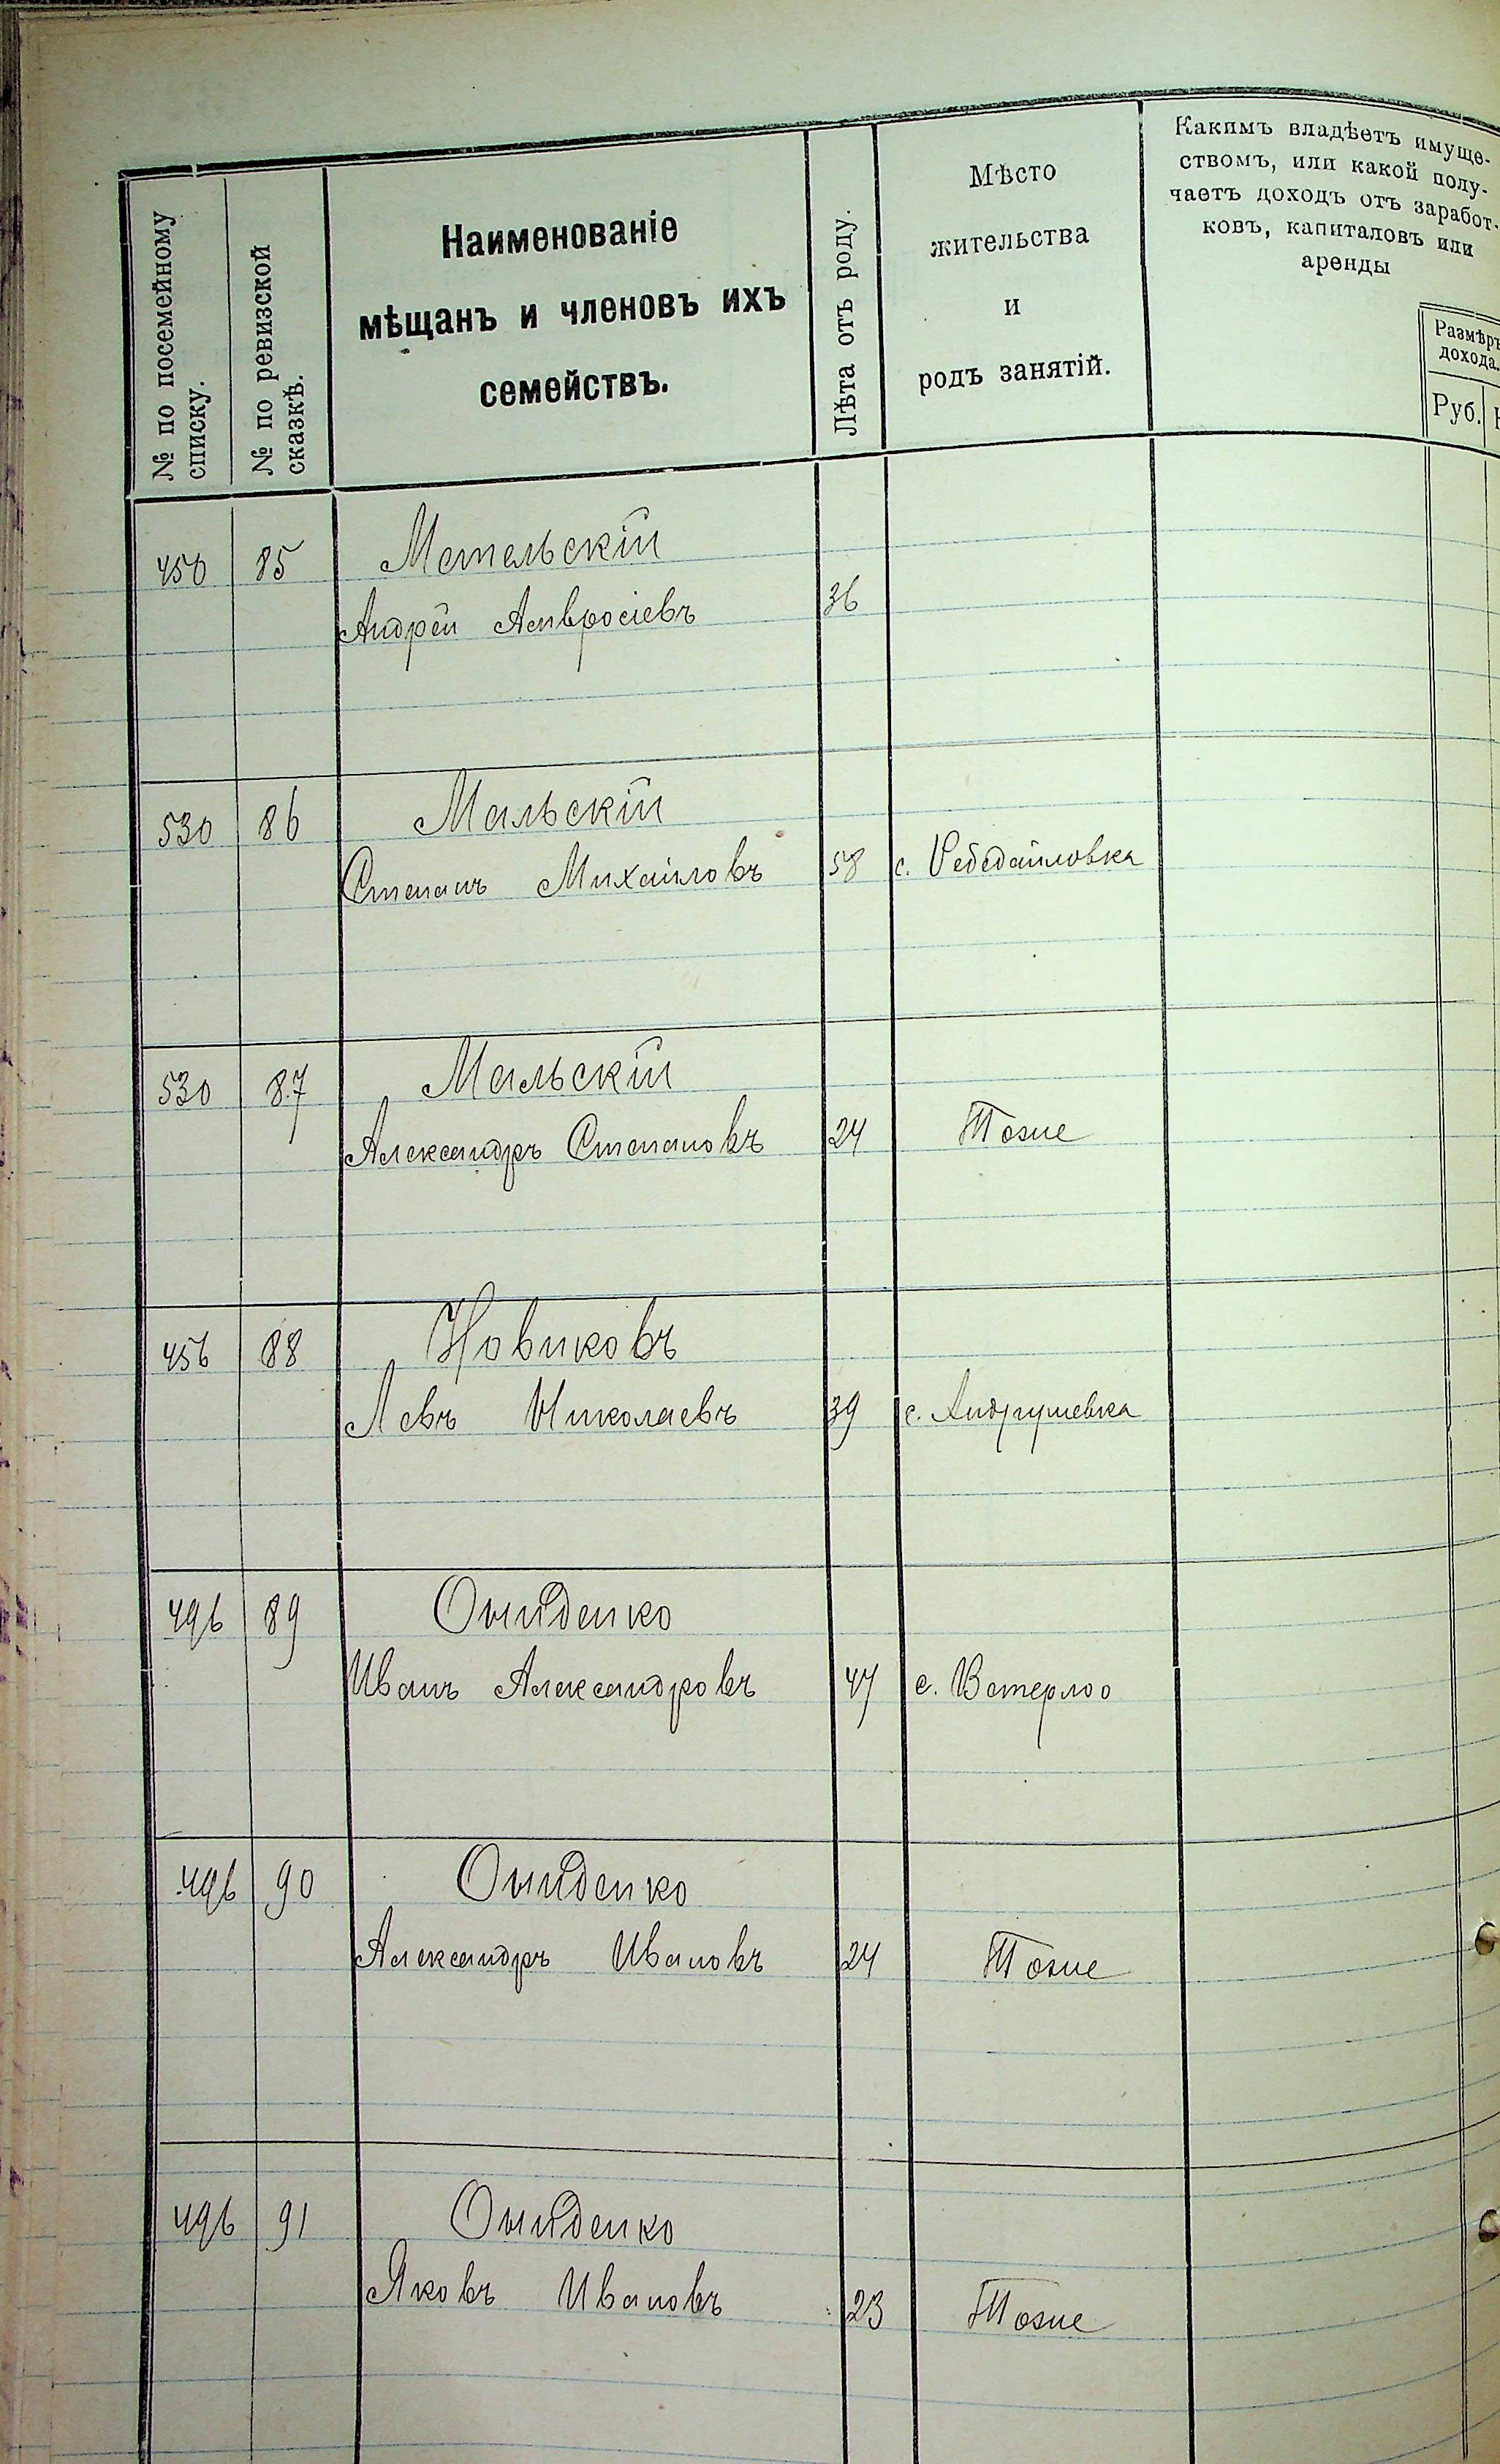 № по посемейному
списку.
№ по ревизской
сказкѣ.
Наименованіе
мѣщанъ и членовъ ихъ
семействъ.
Лѣта отъ роду.
Мѣсто
жительства
и
родъ занятій.
Какимъ владѣетъ имуще-
ствомъ, или какой полу-
чаетъ доходъ отъ заработ-
ковъ, капиталовъ или
аренды
Размѣръ
дохода.
Руб.
450 85 Метельскій
Андрей Амвросіевъ 36
530 86 Мальскій
Степанъ Михайловъ 58 с.
530 87 Мальскій
Александръ Степановъ 24 Тоже
456 88 Новиковъ
Левъ Николаевъ 39 с. Андрушевка
496 89
Иванъ Александровъ 47 с. Ватерлоо
496 90
Александръ Ивановъ 24 Тоже
496 91
Яковъ Ивановъ 23 Тоже